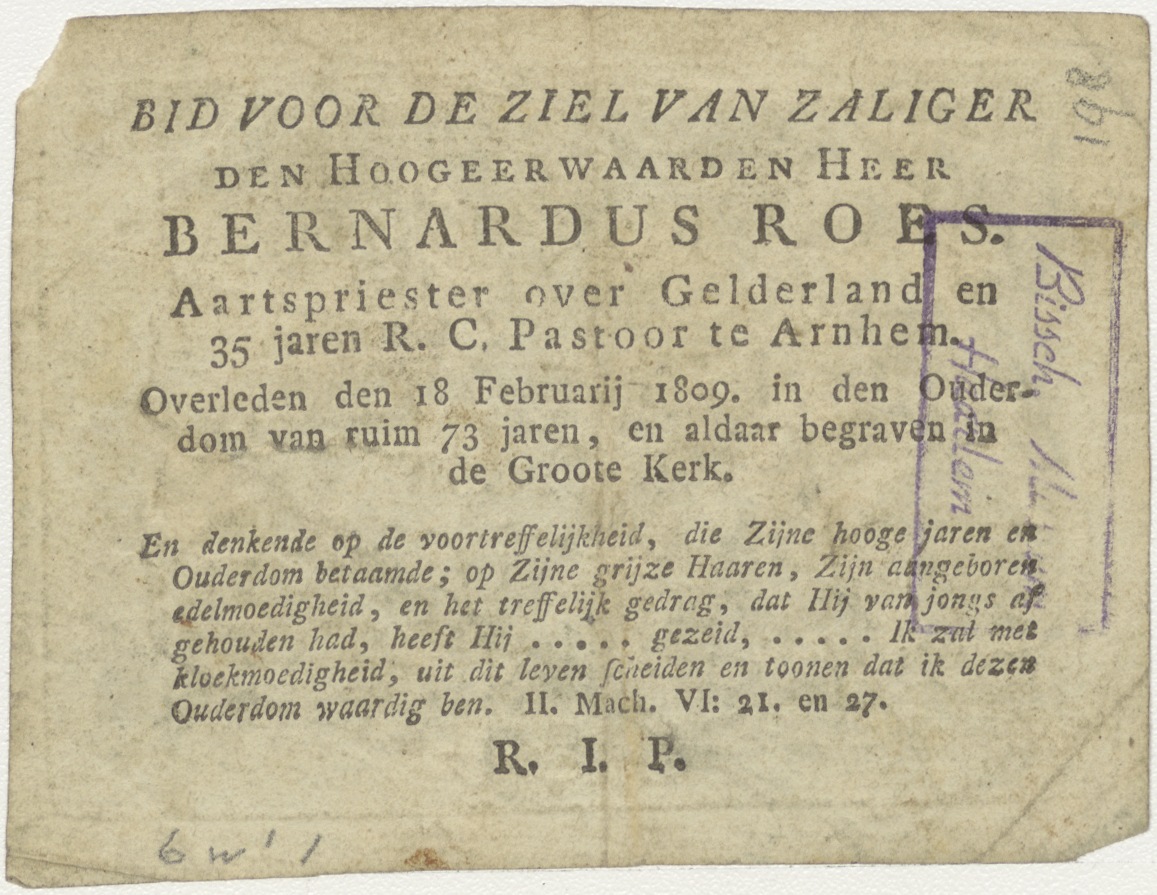 BID VOOR DE ZIEL VAN ZALIGER
DEN HOOGEERWAARDEN HEER
BERNARDUS ROES.
Aartspriester over Gelderland en
35 jaren R. C. Pastoor te Arnhem.
Overleden den 18 Februarij 1809. in den Ouder-
dom van ruim 73 jaren, en aldaar begraven in
de Groote Kerk.
En denkende op de voortreffelijkheid, die Zijne hooge jaren en
Ouderdom betaamde; op Zijne grijze Haaren, Zijn aangeboren
edelmoedigheid, en het treffelijk gedrag, dat Hij van jongs af
gehouden had, heeft Hij ..... gezeid, ..... Ik zal met
kloekmoedigheid, uit dit leven ſcheiden en toonen dat ik dezen
Ouderdom waardig ben. II. Mach. VI: 21. en 27.
R. I. P.
198
Bissch.
Haarlem